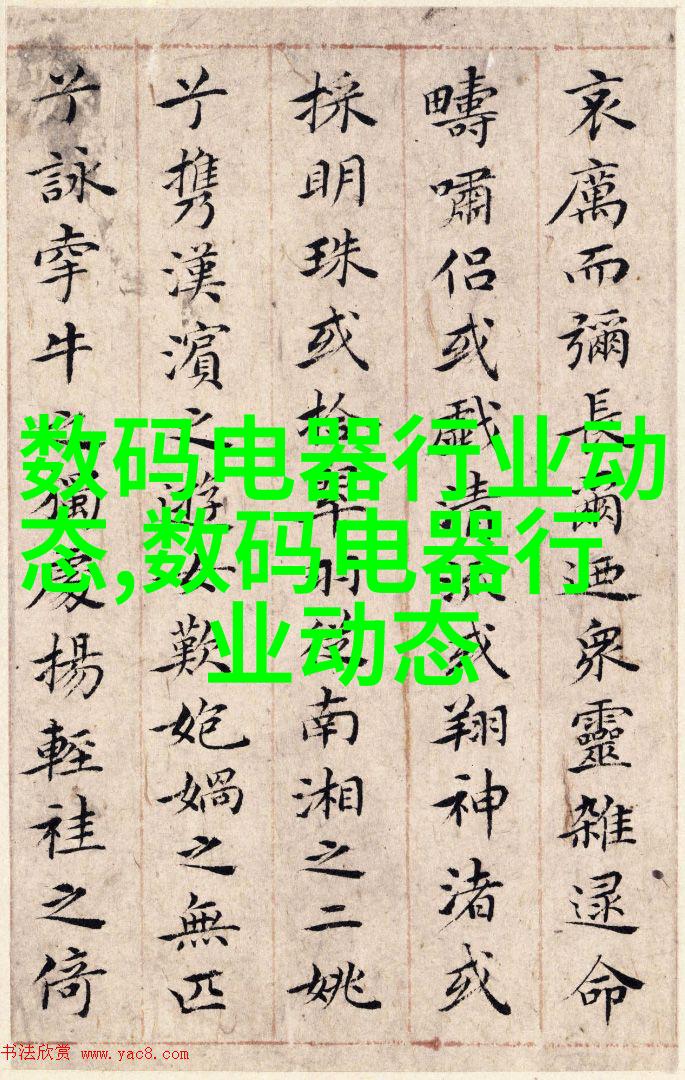 哀厲而彌長爾迺衆靈雜遝命
疇嘯侶或戲清流或翔神渚或
採明珠或拾翠羽從南湘之二姚
兮携漢濱之遊女歎㚿媧之無匹
兮詠牽牛之獨處揚輕袿之倚
数码电器行业动
态,数码电器行
业动态
书法欣赏 www.yac8.com